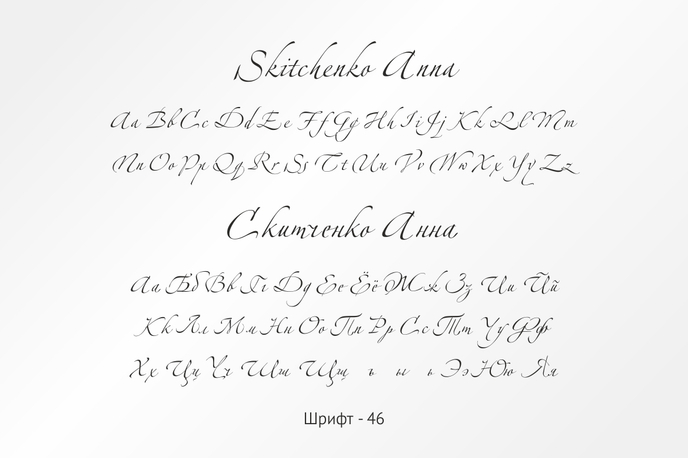 Skitchenko Anna
Aa Bb Cc Dd Ee Ff Gg Hh Ii Jj Kk Ll Mm
Nn Oo Pp Qq Rr Ss Tt Uu Vv Ww Xx Yy Zz
Скитченко Анна
Аа Бб Вв Гг Дд Ее Ёё Жж Зз Ии Йй
Кк Лл Мм Нн Оо Пп Рр Сс Тт Уу Фф
Хх Цц Чч Шш Щщ ъ ы ь Ээ Юю Яя
Шрифт - 46